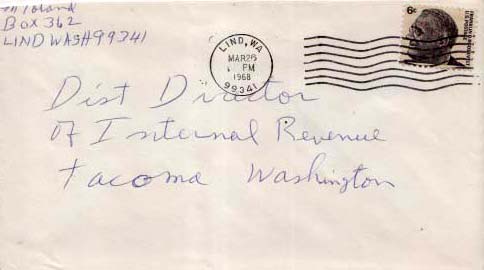 Box 362
LIND WASH 99341
LIND, WA
MAR 26
PM
1968
99341
6¢
Dist Director
of Internal Revenue
Tacoma Washington